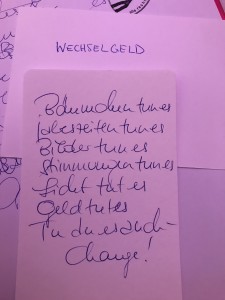 WECHSELGELD
Bäume tun es
Jahreszeiten tun es
Bilder tun es
Stimmungen tun es
Licht tut es
Geld tut es
Tu du es auch -
Change!